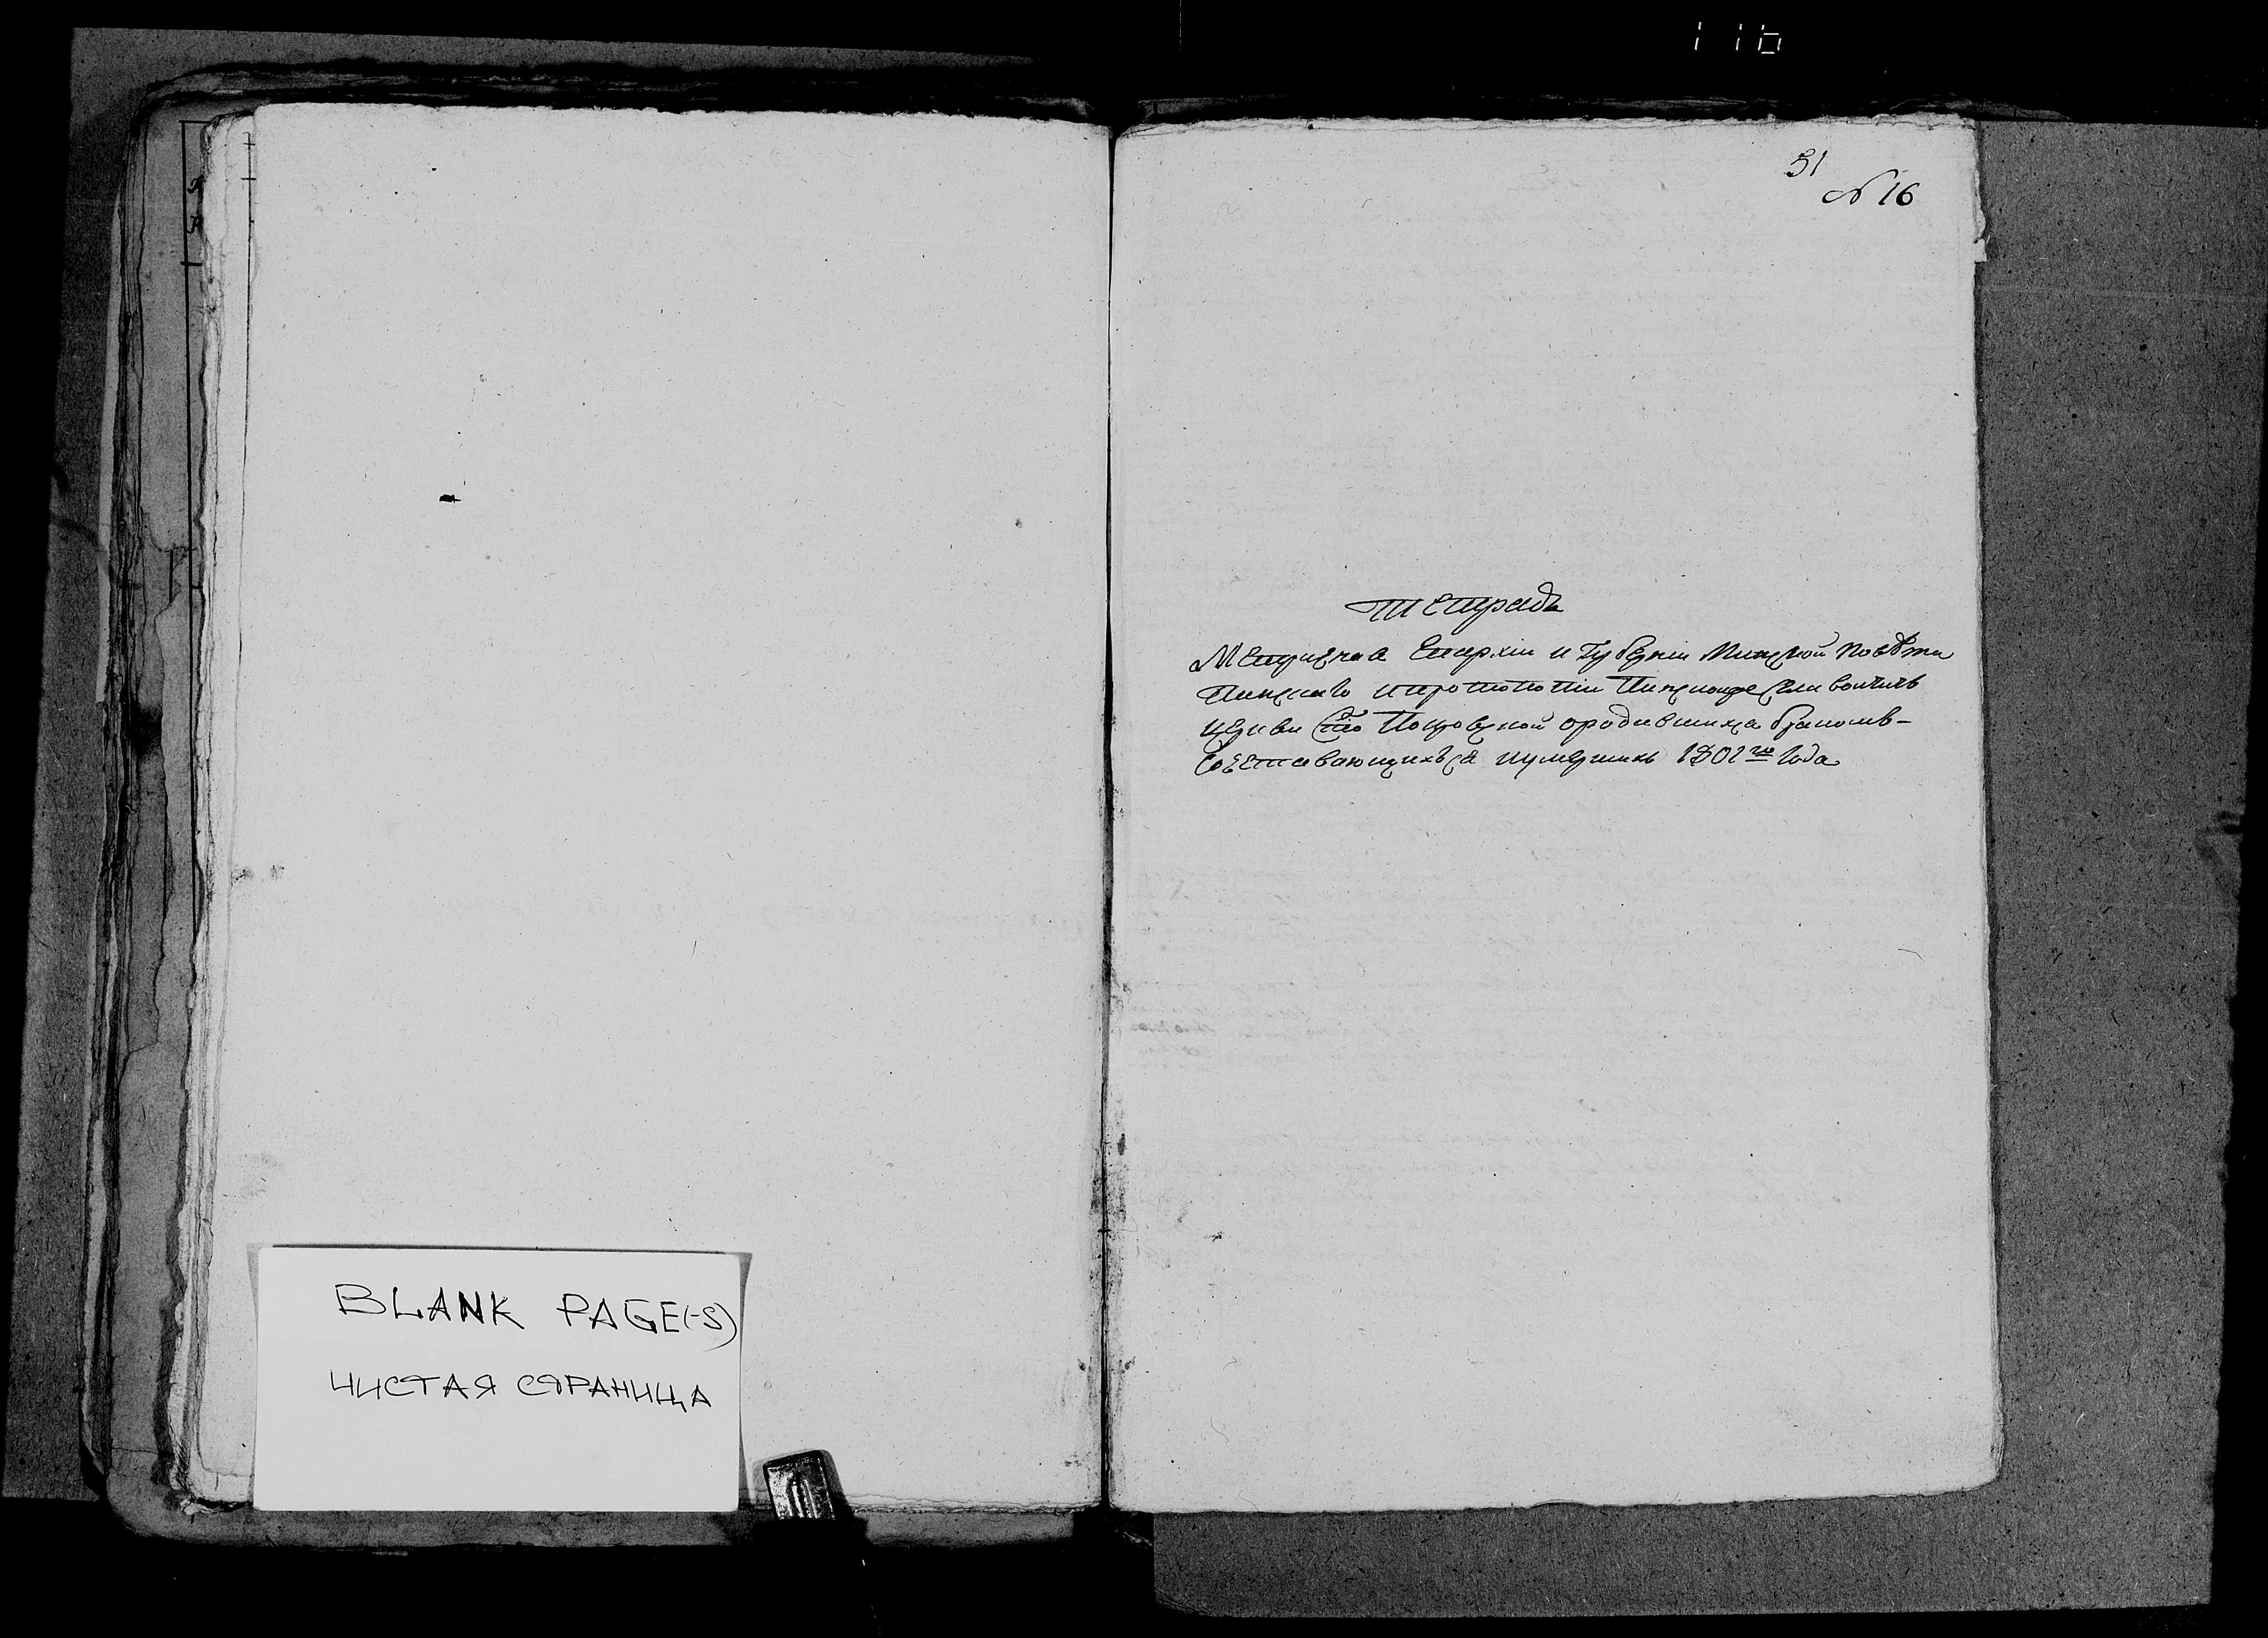 116
51
N 16
Тетрадь
Метричная Епархіи и Губерніи Минской Повѣта
Пинскаго и протопопіи Пинской села
Церкви Сто Покровской о родившихся бракомъ-
Сочетавающихъся и умершихъ 1801го Года
BLANK PAGE(-S)
ЧИСТАЯ СТРАНИЦА